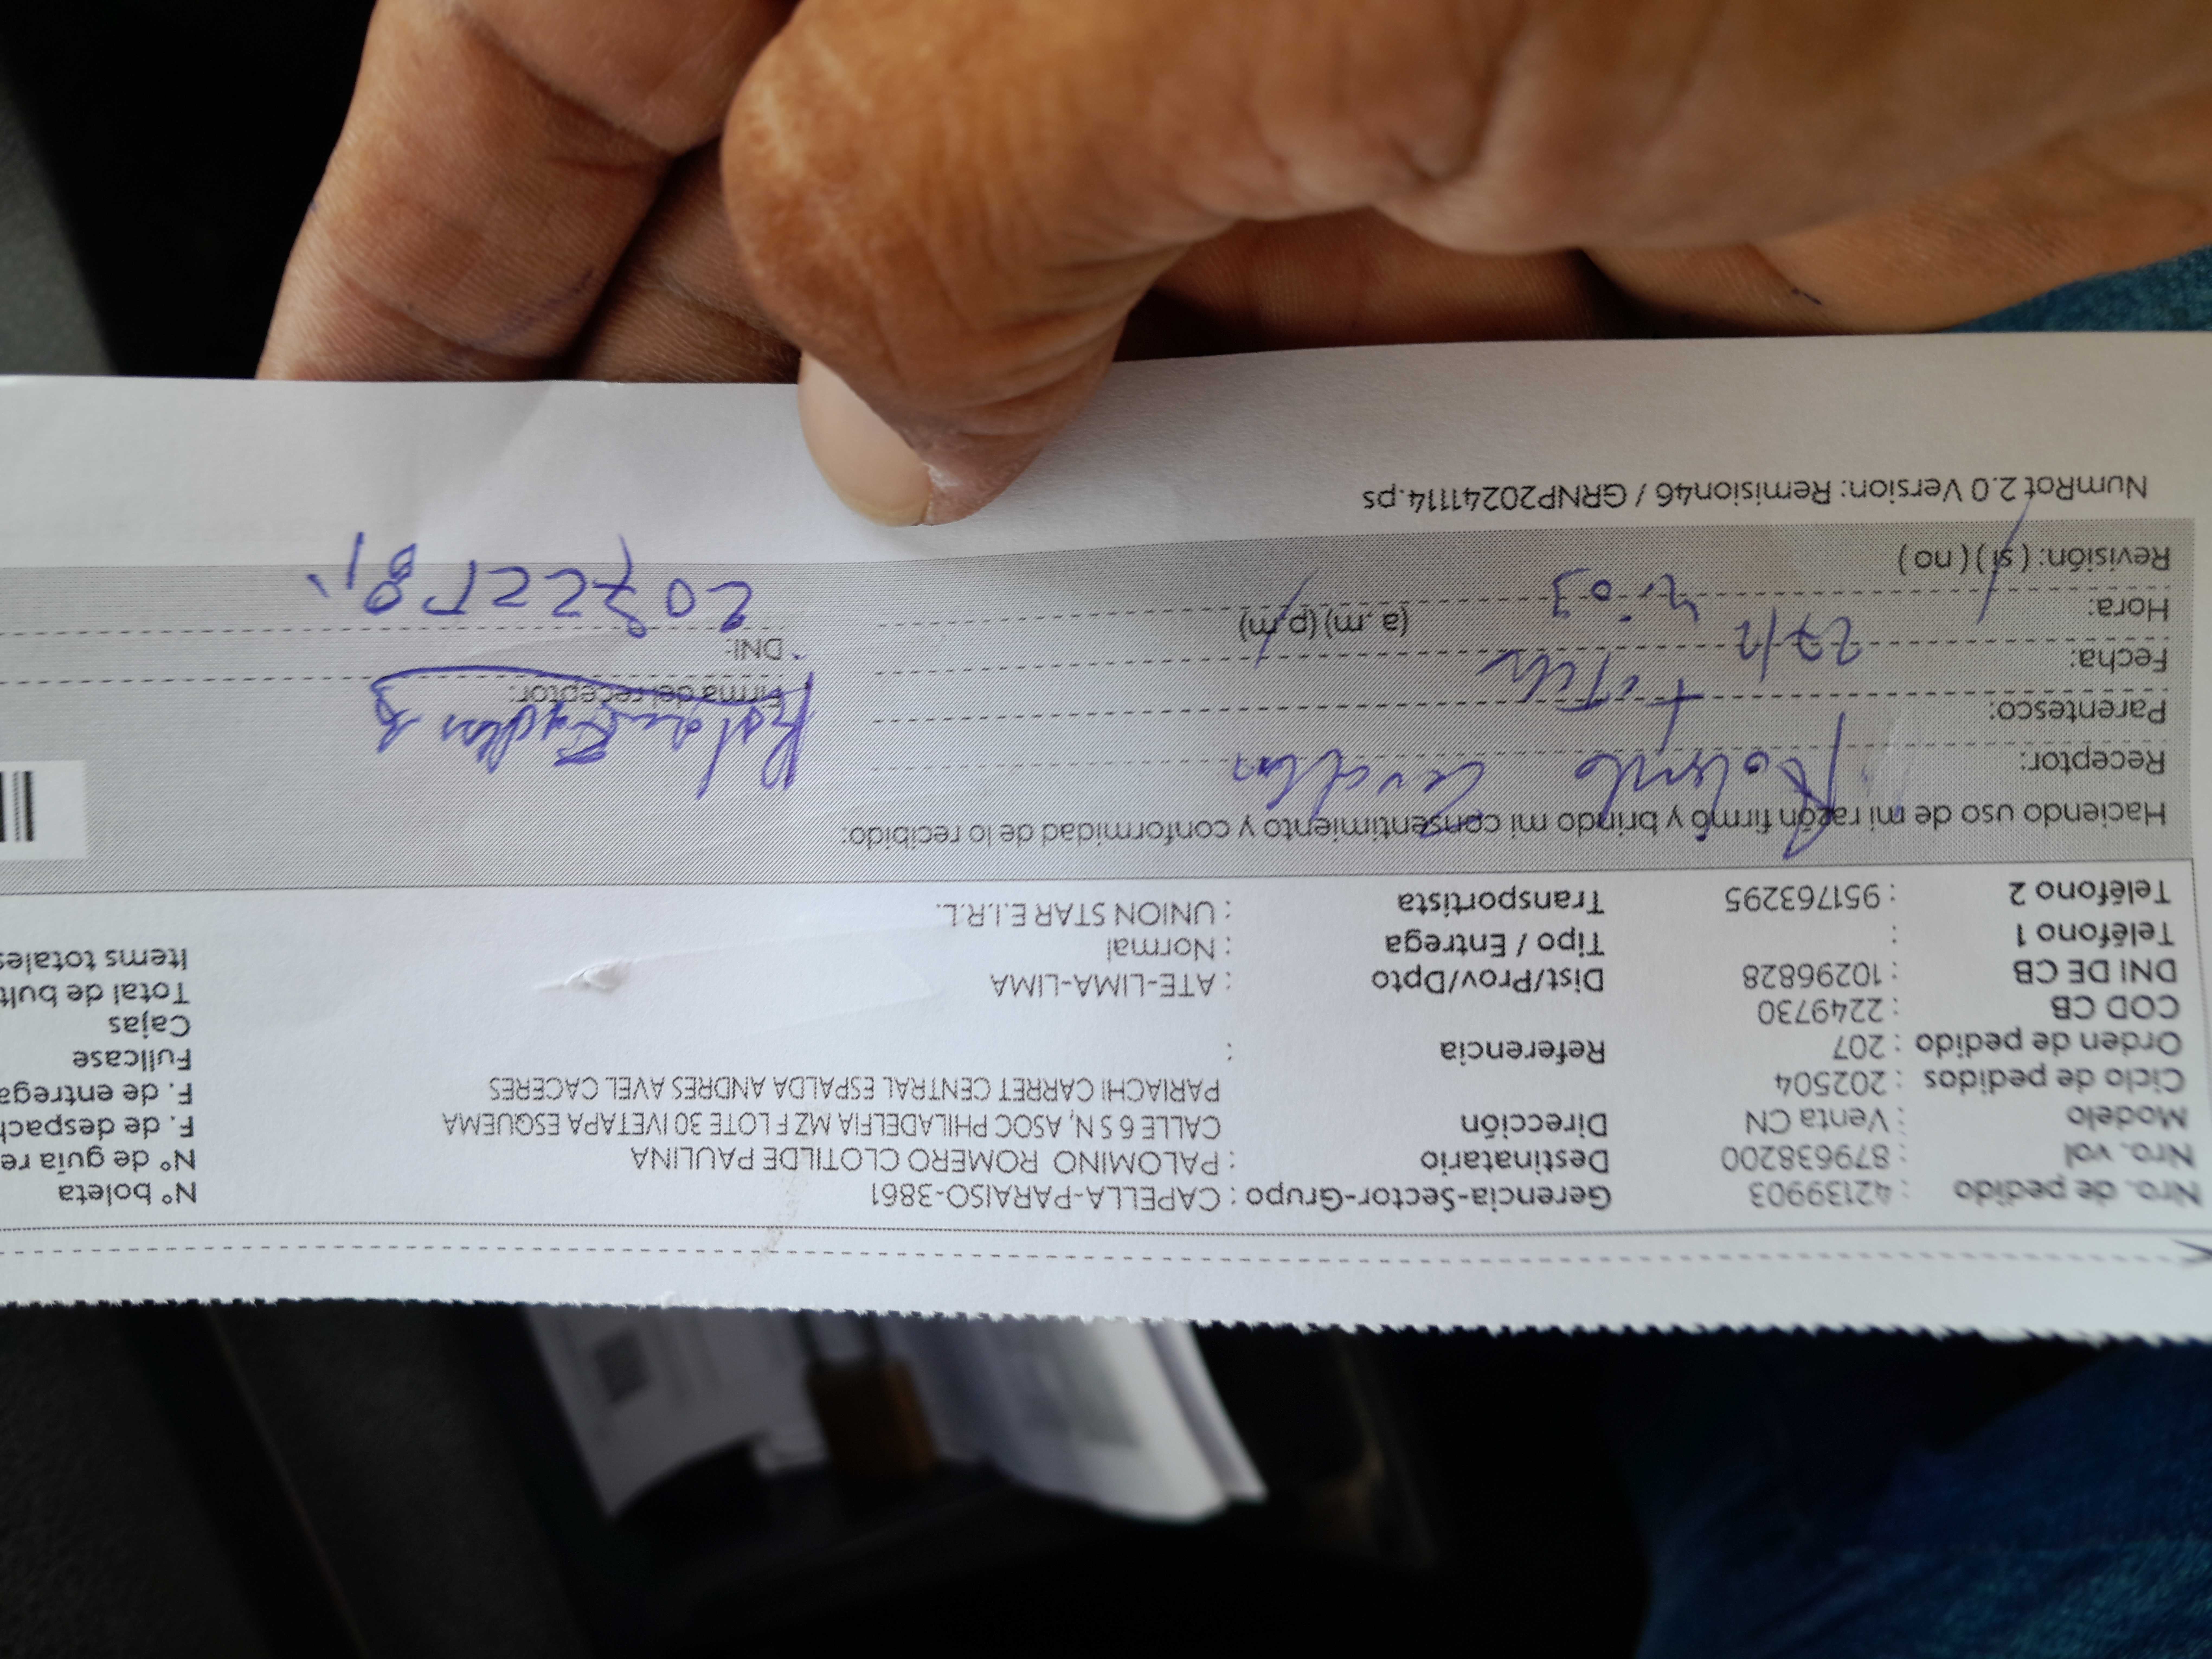 Nro. de pedido : 42139903 Gerencia-Sector-Grupo : CAPELLA-PARAISO-3861 N° boleta
Nro. vol : 879638200 Destinatario : PALOMINO ROMERO CLOTILDE PAULINA N° de guía re
Modelo : Venta CN Dirección CALLE 6 S N, ASOC PHILADELFIA MZ F LOTE 30 IVETAPA ESQUEMA F. de despach
Ciclo de pedidos : 202504 PARIACHI CARRET CENTRAL ESPALDA ANDRES AVEL CACERES F. de entrega
Orden de pedido : 207 Referencia : Fullcase
COD CB : 2249730 Cajas
DNI DE CB : 10296828 Dist/Prov/Dpto : ATE-LIMA-LIMA Total de bult
Teléfono 1 : Tipo / Entrega : Normal Items totales
Teléfono 2 : 951763295 Transportista : UNION STAR E.I.R.L.
Haciendo uso de mi razón firmo y brindo mi consentimiento y conformidad de lo recibido:
Receptor:
Parentesco: Firma del receptor:
Fecha: DNI:
Hora: (a.m) (p.m)
Revisión: (si) (no)
NumRot 2.0 Version: Remision46 / GRNP20241114.ps